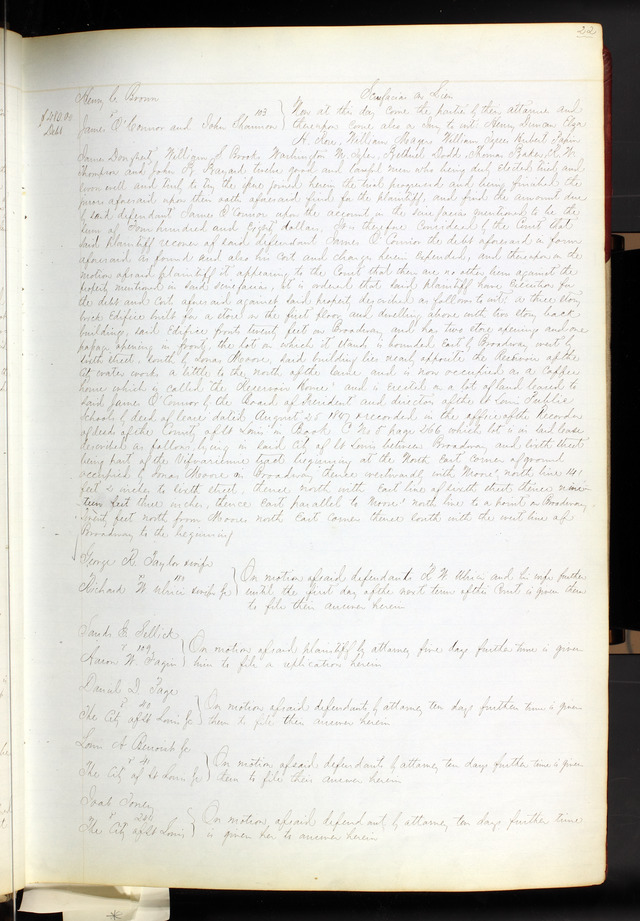 22
Henry C Brown Scirefacias on Lien
$410.00 v 103 Now at this day come the parties by their attornies and
Debt James O'Connor and John Shannon thereupon come also a Jury to wit: Henry Duncan
William Tyler Hubert
James Dougherty William S Brood, Washington W. Tyler, Bethuel Dodd Thomas Baker, H. W.
Thompson and John F. Bayard twelve good and lawful men who being duly elected tried and
sworn well and truly to try the issue joined herein the trial progressed and being finished the
jurors aforesaid upon their oath aforesaid find for the plaintiff, and find the amount due
by said defendant James O'Connor upon the account in the scirefacias mentioned to be the
sum of Four hundred and dollars. It is therefore considered by the Court that
said plaintiff recover of said defendant James O'Connor the debt aforesaid in form
aforesaid so found and also his cost and charges herein Expended, and thereupon on the
motion of said plaintiff it appearing to the Court that there are no other liens against the
property mentioned in said scirefacias, It is ordered that said plaintiff have Execution for
the debt and cost aforesaid against said property described as follows to wit: a three story
brick Edifice built for a store on the first floor and dwelling above with two story back
building, said Edifice fronts twenty feet on Broadway and has two store openings and one
passage opening in front, the lot on which it stands is bounded East by Broadway, west by
sixth street, south by Jonas Moore, said building lies nearly opposite the Reservoir of the
City water works a little to the north of the same and is now occupied as a Coffee
house which is called the "Reservoir House" and is erected on a lot of land leased to
said James O'Connor by the Board of President and directors of the St Louis Public
Schools by deed of lease dated August 25 1847 recorded in the office of the Recorder
of deeds of the County of St Louis in Book C No 5 page 266, which lot is in said lease
described as follows, lying in said City of St Louis between Broadway and sixth street
being part of the tract beginning at the North East corner of ground
occupied by Jonas Moore on Broadway thence westwardly with Moores north line 141
feet inches to sixth street, thence north with East line of sixth street thence nine-
teen feet three inches, thence East parallel to Moores' north line to a point on Broadway
twenty feet north from Moores north East corner thence South with the west line of
Broadway to the beginning
George R. Taylor & wife
v 113 On motion of said defendants R W Ulrici and his wife further
Richard W Ulrici & wife &c until the first day of the next term of this Court is given them
to file their answer herein
Sands G Sellick
v 119 On motion of said plaintiff by attorney five days further time is given
Aaron W. Fagin him to file a replication herein
Daniel D Page
v 40 On motion of said defendants by attorney ten days further time is given
The City of St Louis &c them to file their answer herein
Louis A Benoist &c
v 41 On motion of said defendants by attorney ten days further time is given
The City of St Louis &c them to file their answer herein
Toney
v On motion of said defendant by attorney ten days further time
The City of St Louis is given her to answer herein